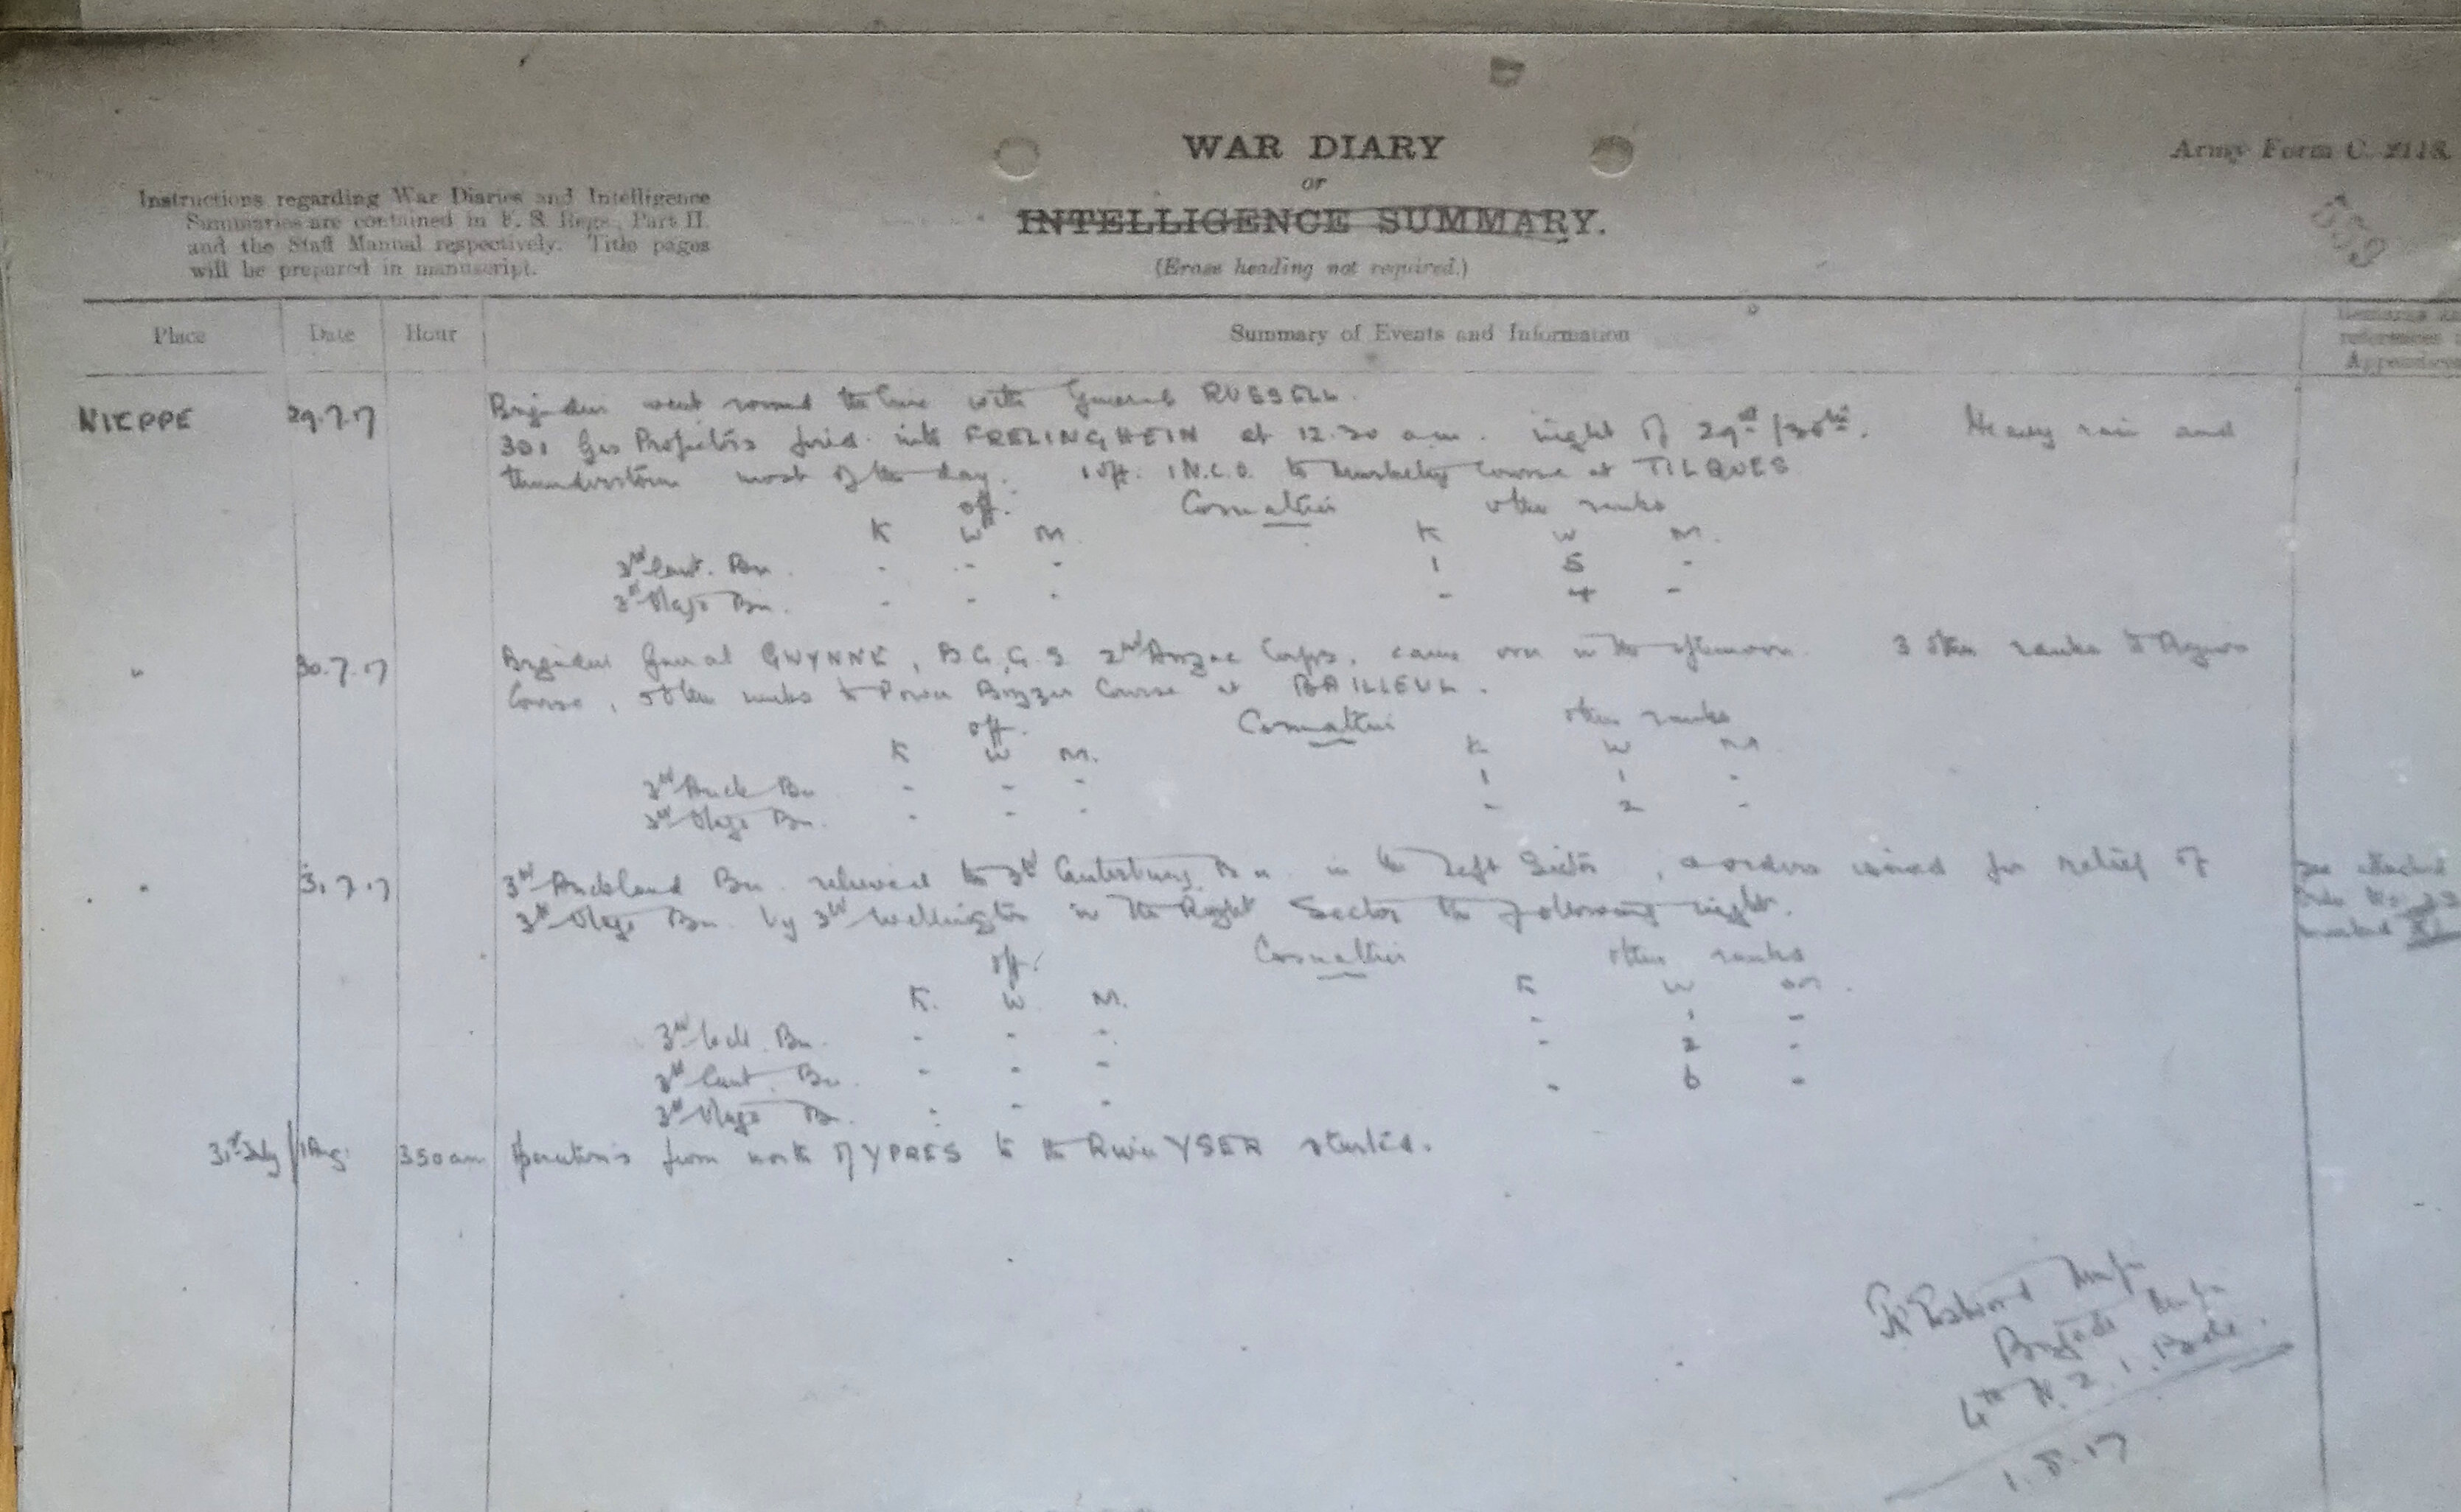 WAR DIARY
or
INTELLIGENCE SUMMARY.
(Erase heading not required.)
Army Form C. 2118.
Instructions regarding War Diaries and Intelligence
Summaries are contained in F. S. Regs., Part II.
and the Staff Manual respectively. Title pages
will be prepared in manuscript.
Place Date Hour Summary of Events and Information Remarks and
references to
Appendices
NIEPPE 29.7.17 Brigadier went round the line with General RUSSELL.
301 Gas Projectors fired into FRELINGHEIN at 12.30 a.m. night of 29th/30th. Heavy rain and
thunderstorm most of the day. 1 off. 1 N.C.O. to Musketry Course at TILQUES
off. Casualties other ranks
K W M. K W M.
3rd Cant. Bn. - - - 1 5 -
3rd Otago Bn. - - - - 4 -
" 30.7.17 Brigadier General GWYNNE, B.G.G.S 2nd Anzac Corps, came over in the afternoon. 3 other ranks to
Course, other ranks to Power Buzzer Course at BAILLEUL.
off. Casualties other ranks
K W M. K W M
3rd Auck Bn - - - 1 1 -
3rd Otago Bn. - - - - 2 -
" 31.7.17 3rd Auckland Bn. relieved the 3rd Canterbury Bn. in the Left Sector, orders issued for relief of
3rd Otago Bn. by 3rd Wellington in the Right Sector the following night.
See attached
Order No.
marked
off. Casualties other ranks
K. W. M. K W M.
3rd Well. Bn. - - - - 1 -
3rd Cant. Bn. - - - - 2 -
3rd Otago Bn. - - - - 6 -
31st July/1 Aug. 3.50 am Operations from north of YPRES to the River YSER started.
Major
Brigade Major
4th N.Z.I. Bde.
1.8.17